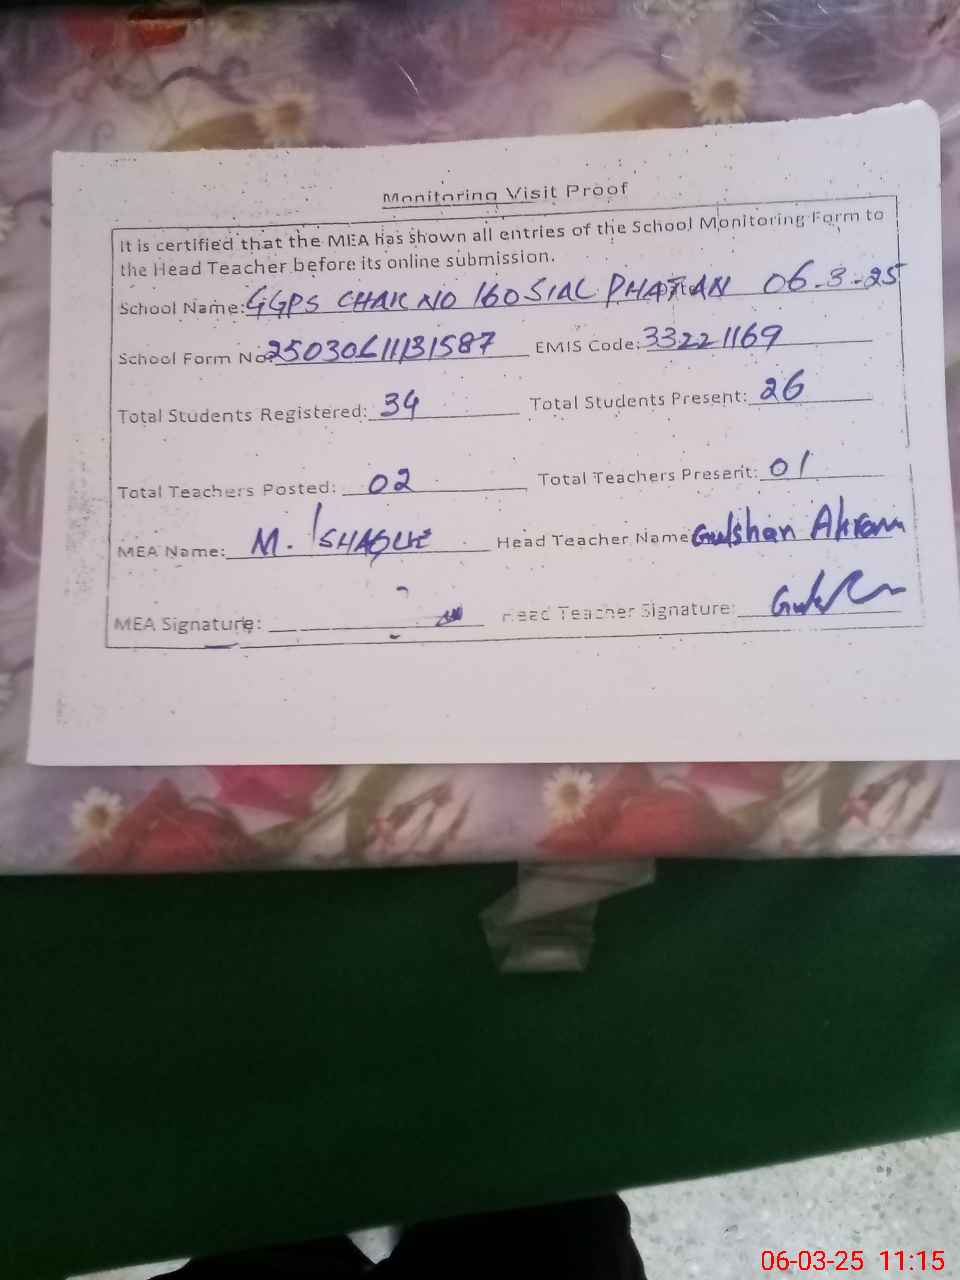 Monitoring Visit Proof
It is certified that the MEA has shown all entries of the School Monitoring Form to
the Head Teacher before its online submission.
School Name: GGPS CHAK NO 160 SIAL PHATIAN 06-3-25
School Form No: 25030611131587 EMIS Code: 33221169
Total Students Registered: 34 Total Students Present: 26
Total Teachers Posted: 02 Total Teachers Present: 01
MEA Name: M. ISHAQUE Head Teacher Name Gulshan Akram
MEA Signature: Head Teacher Signature:
06-03-25 11:15